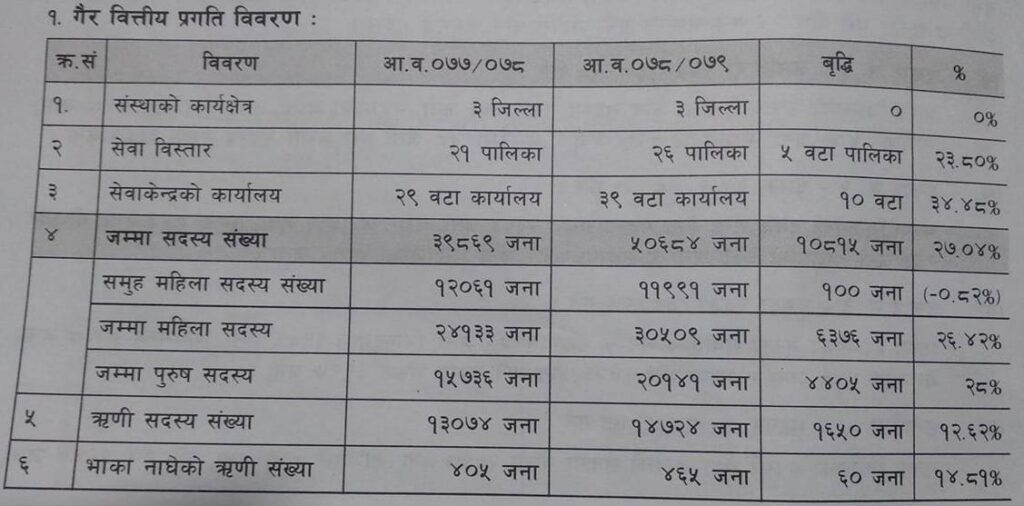 १. गैर वित्तीय प्रगति विवरण :
क्र.सं विवरण आ.व.०७७/०७८ आ.व.०७८/०७९ बृद्धि %
१. संस्थाको कार्यक्षेत्र ३ जिल्ला ३ जिल्ला ० ०%
२ सेवा विस्तार २१ पालिका २६ पालिका ५ वटा पालिका २३.८०%
३ सेवाकेन्द्रको कार्यालय २९ वटा कार्यालय ३९ वटा कार्यालय १० वटा ३४.४८%
४ जम्मा सदस्य संख्या ३९८६९ जना ५०६८४ जना १०८१५ जना २७.०४%
समुह महिला सदस्य संख्या १२०६१ जना ११९९१ जना १०० जना (-०.८२%)
जम्मा महिला सदस्य २४१३३ जना ३०५०९ जना ६३७६ जना २६.४२%
जम्मा पुरुष सदस्य १५७३६ जना २०१४१ जना ४४०५ जना २८%
५ ऋणी सदस्य संख्या १३०७४ जना १४७२४ जना १६५० जना १२.६२%
६ भाका नाघेको ऋणी संख्या ४०५ जना ४६५ जना ६० जना १४.८१%